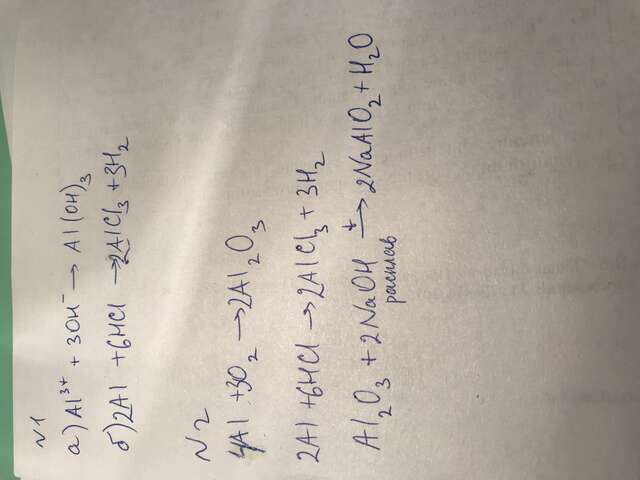 №1
а) Al³⁺ + 3OH⁻ → Al(OH)₃
б) 2Al + 6HCl → 2AlCl₃ + 3H₂
№2
4Al + 3O₂ → 2Al₂O₃
2Al + 6HCl → 2AlCl₃ + 3H₂
Al₂O₃ + 2NaOH t→ 2NaAlO₂ + H₂O
расплав